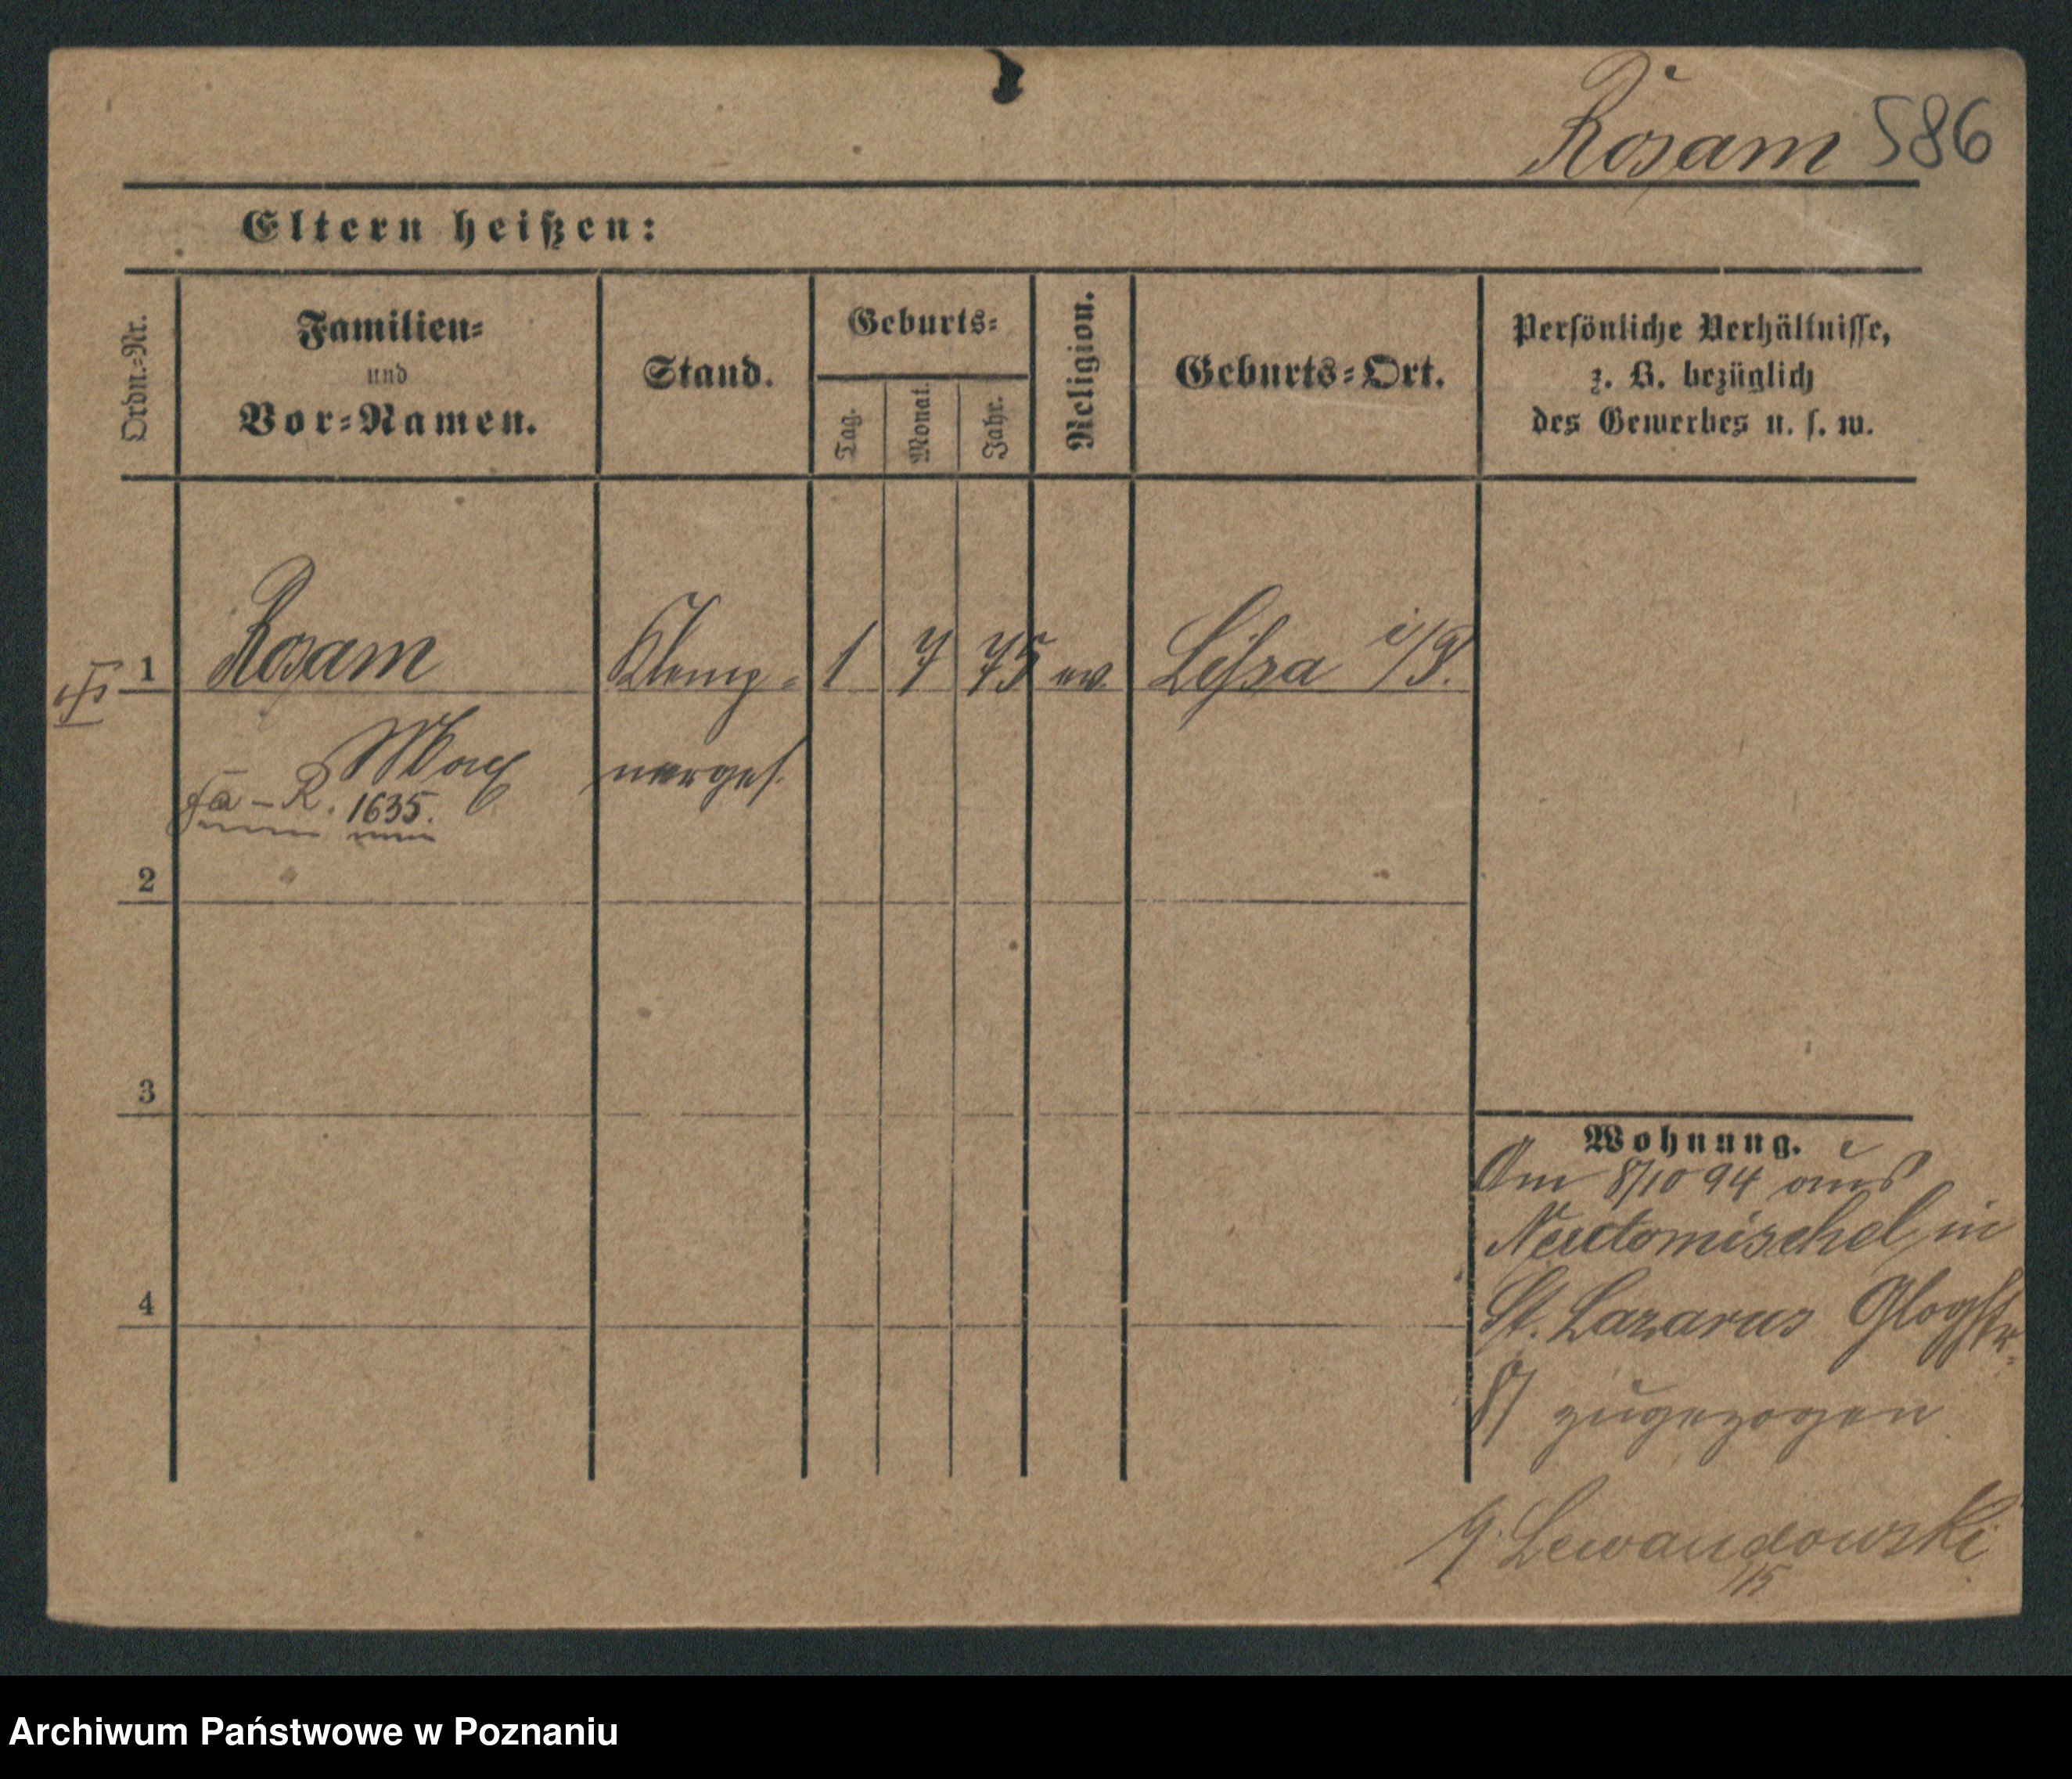 Rosam 586
Eltern heißen:
Ordn.=Nr.
Familien=
und
Vor=Namen.
Stand.
Geburts=
Tag.
Monat.
Jahr.
Religion.
Geburts=Ort.
Persönliche Verhältnisse,
z. B. bezüglich
des Gewerbes u. s. w.
1 Rosam Klemp= 1 7 75 ev. Lissa i/P.
Max nerges.
Fa - R. 1635.
2
3
4
Wohnung.
Am 8/10 94 aus
Neutomischel in
St. Lazarus Glogstr.
87 zugezogen
Lewandowski
15
Archiwum Państwowe w Poznaniu